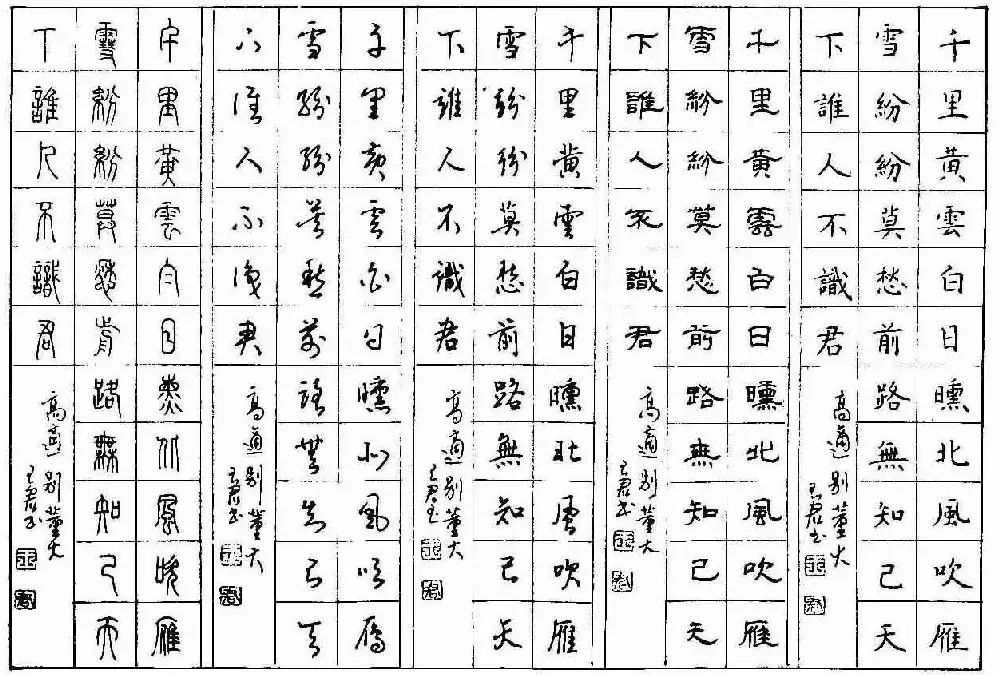 千里黃雲白日曛北風吹雁
雪紛紛莫愁前路無知己天
下誰人不識君
高適別董大
千里黃雲白日曛北風吹雁
雪紛紛莫愁前路無知己天
下誰人不識君
高適別董大
千里黃雲白日曛北風吹雁
雪紛紛莫愁前路無知己天
下誰人不識君
高適別董大
千里黃雲白日曛北風吹雁
雪紛紛莫愁前路無知己天
下誰人不識君
高適別董大
千里黃雲白日曛北風吹雁
雪紛紛莫愁前路無知己天
下誰人不識君
高適別董大